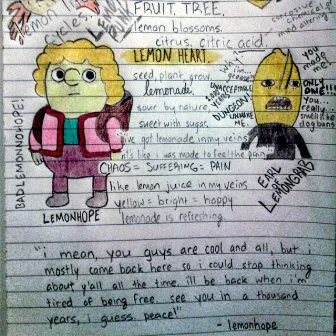 FRUIT. TREE.
lemon blossoms.
citrus. citric acid.
LEMON HEART.
seed, plant, grow.
lemonade.
sour by nature,
sweet with sugar.
i've got lemonade in my veins
it's like i was made to feel the pain
CHAOS = SUFFERING = PAIN
like lemon juice in my veins
yellow = bright = happy
lemonade is refreshing.
BADLEMONNOHOPE!
LEMONHOPE
UNACCEPTABLE
DUNGEON
UNMAKE
ME.
YOU
made
me!
ONLY
ONE!!!
You
really
smell like
dog buns
EARL
of
LEMONGRAB
"i mean, you guys are cool and all, but i
mostly came back here so i could stop thinking
about y'all all the time. i'll be back when i'm
tired of being free. see you in a thousand
years, i guess. peace!"
- lemonhope